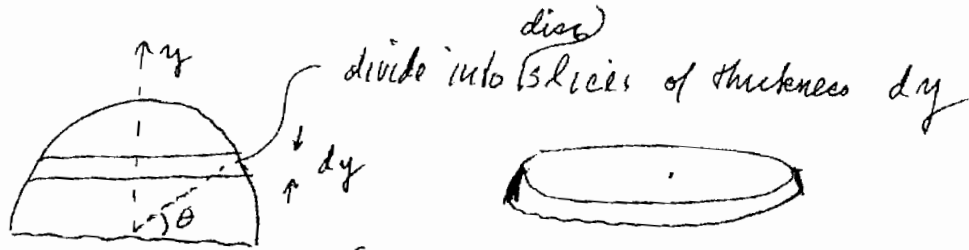 disc
divide into slices of thickness dy
↑ y
dy
θ